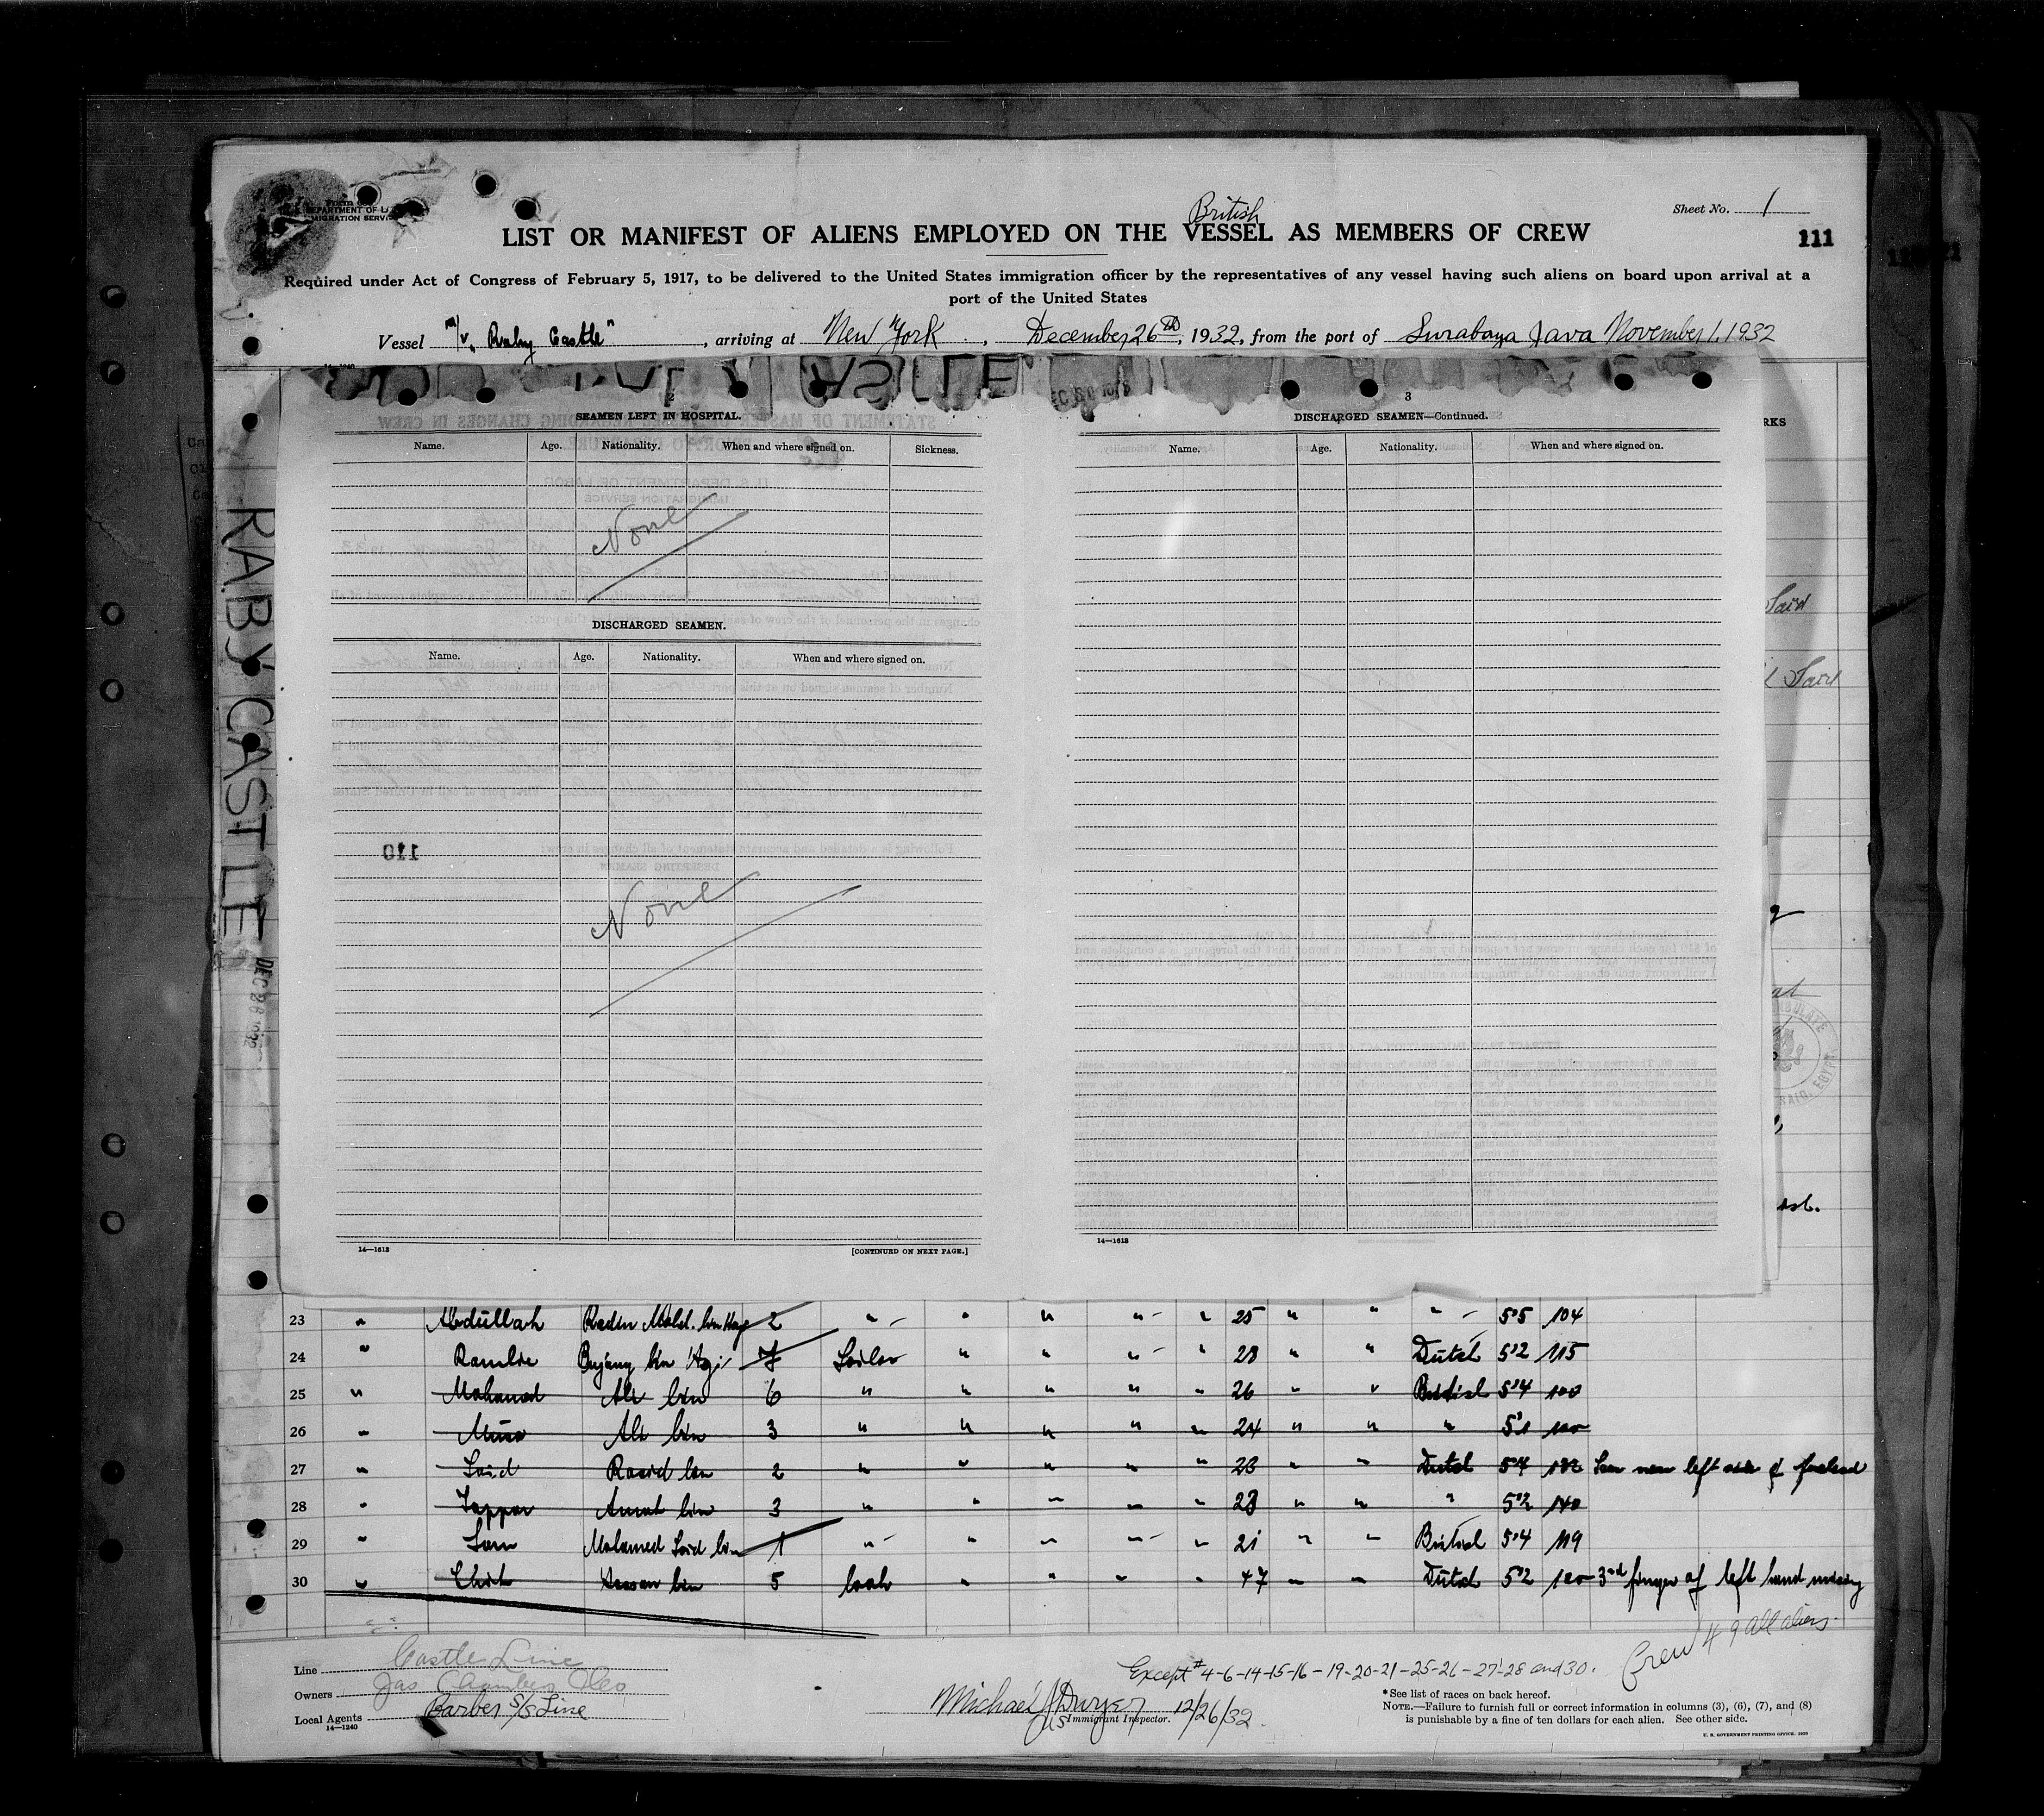 DEPARTMENT OF LA
MIGRATION SERVICE
British
Sheet No. 1
LIST OR MANIFEST OF ALIENS EMPLOYED ON THE VESSEL AS MEMBERS OF CREW
111
Required under Act of Congress of February 5, 1917, to be delivered to the United States immigration officer by the representatives of any vessel having such aliens on board upon arrival at a
port of the United States
Vessel M/V "Raby Castle", arriving at New York, December 26th, 1932, from the port of Surabaya Java November 1. 1932
RABY CASTLE
DEC 26 1932
2
SEAMEN LEFT IN HOSPITAL.
Name. Age. Nationality. When and where signed on. Sickness.
None
DISCHARGED SEAMEN.
Name. Age. Nationality. When and where signed on.
110
None
14—1613 [CONTINUED ON NEXT PAGE.]
3
DISCHARGED SEAMEN—Continued.
Name. Age. Nationality. When and where signed on.
14—1613
RKS
Said
Said
SAID, EGYPT
23 " Abdullah Raden Mohd. bin Haji 2 " " " " " 25 " " " 5'5 104
24 " Ramlie Bujang bin Haji 7 Sailor " " " " 28 " " Dutch 5'2 115
25 " Mohamed Ali bin 6 " " " " " 26 " " British 5'4 100
26 " Musa Ali bin 3 " " " " " 24 " " " 5'1 100
27 " Said Rasid bin 2 " " " " " 23 " " Dutch 5'4 132 Scar near left side of forehead
28 " Amat bin 3 " " " " " 28 " " " 5'2 140
29 " Mohamed Said bin 1 " " " " " 21 " " British 5'4 119
30 " Hassan bin 5 Cook " " " " 47 " " Dutch 5'2 100 3rd finger of left hand missing
Crew 49 all aliens.
Except # 4-6-14-15-16-19-20-21-25-26-27-28 and 30.
Line Castle Line
Owners Jas Chambers &Co
Local Agents Barber S/S Line
14—1240
Michael J Dwyer 12/26/32.
US Immigrant Inspector.
*See list of races on back hereof.
NOTE.—Failure to furnish full or correct information in columns (3), (6), (7), and (8)
is punishable by a fine of ten dollars for each alien. See other side.
U. S. GOVERNMENT PRINTING OFFICE. 1930